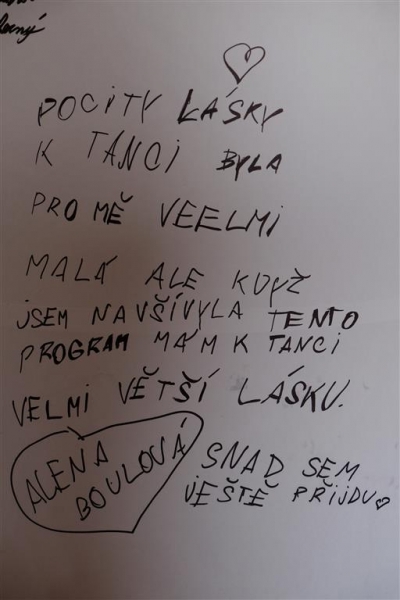 POCITY LÁSKY
K TANCI BYLA
PRO MĚ VEELMI
MALÁ ALE KDYŽ
JSEM NAVŠÍVYLA TENTO
PROGRAM MÁM K TANCI
VELMI VĚTŠÍ LÁSKU.
ALENA
BOULOVÁ
SNAD SEM
JEŠTĚ PŘIJDU